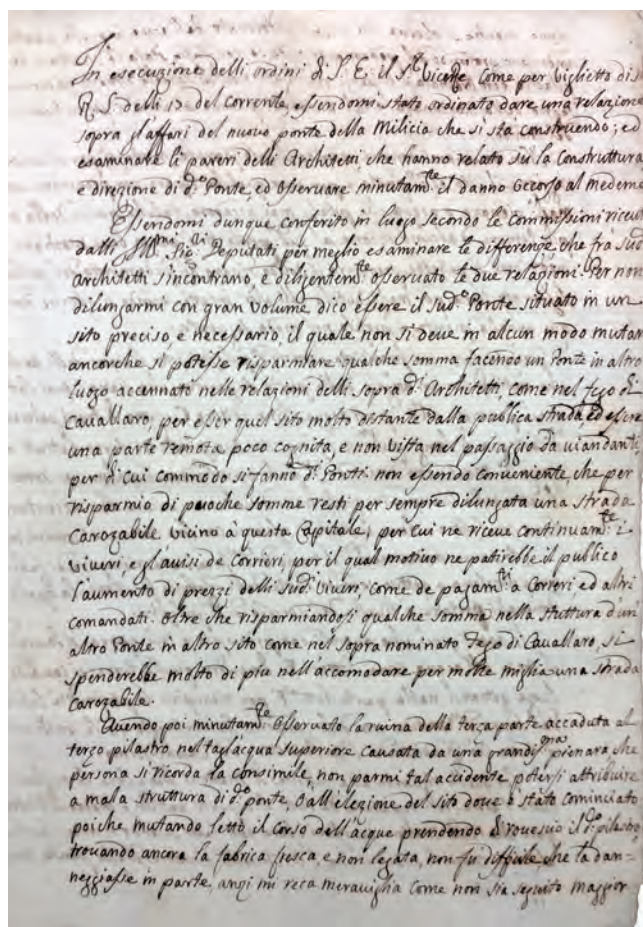 In esecuzione delli ordini di S. E. il S.r Vicerè, come per viglietto di S.
R. S. delli 17 del corrente, essendomi stato ordinato dare una relazione
sopra gl'affari del nuovo ponte della Milicia che si stà construendo; ed
esaminare li pareri delli Architetti, che hanno relato su la construttura
e direzione di d.o Ponte, ed osservare minutam.te il danno occorso al medem
Essendomi dunque conferito in luogo secondo le commissioni riceu
dalli Ill.mi Sig.ri Deputati per meglio esaminare le differenze, che frà sud.
Architetti s'incontrano, e diligentem.te osservato le due relazioni. Per non
dilungarmi con gran volume dico essere il sud.o Ponte situato in un
sito preciso, e necessario, il quale non si deve in alcun modo mutar
ancorche si potesse risparmiare qualche somma facendo un Ponte in altro
luogo accennato nelle relazioni delli sopra d.i Architetti, come nel fego di
Cavallaro, per esser quel sito molto distante dalla publica strada, ed essere
una parte remota poco cognita, e non vista nel passaggio da viandanti
per di cui commodo si fanno d.i Pontti non essendo conveniente, che per
risparmio di puoche somme resti per sempre dilungata una strada
carozabile vicino à questa Capitale, per cui ne riceve continuam.te i
viveri, e gl'avisi de Corrieri, per il qual motivo ne patirebbe il publico
l'aumento di prezzi delli sud.i viveri, come de pagam.ti a Correri ed altri
comandati. Oltre che risparmiandosi qualche somma nella stuttura d'un
altro Ponte in altro sito come nel sopra nominato Fego di Cavallaro, si
spenderebbe molto di piu nell'accomodare per molte miglia una strada
carozabile.
Avendo poi minutam.te osservato la ruina della terza parte accaduta al
terzo pilastro nel tagl'acqua superiore causata da una grandis.ma pienara che
persona si ricorda la consimile, non parmi tal accidente potersi attribuire
a mala struttura di d.o ponte, dall'elezione del sito dove è stato cominciato
poiche mutando letto il corso dell'acque prendendo di rovescio il d.o pilastro,
trovando ancora la fabrica fresca e non legata, non fù difficile, che la dan-
neggiasse in parte, anzi mi reca meraviglia come non sia seguito maggior